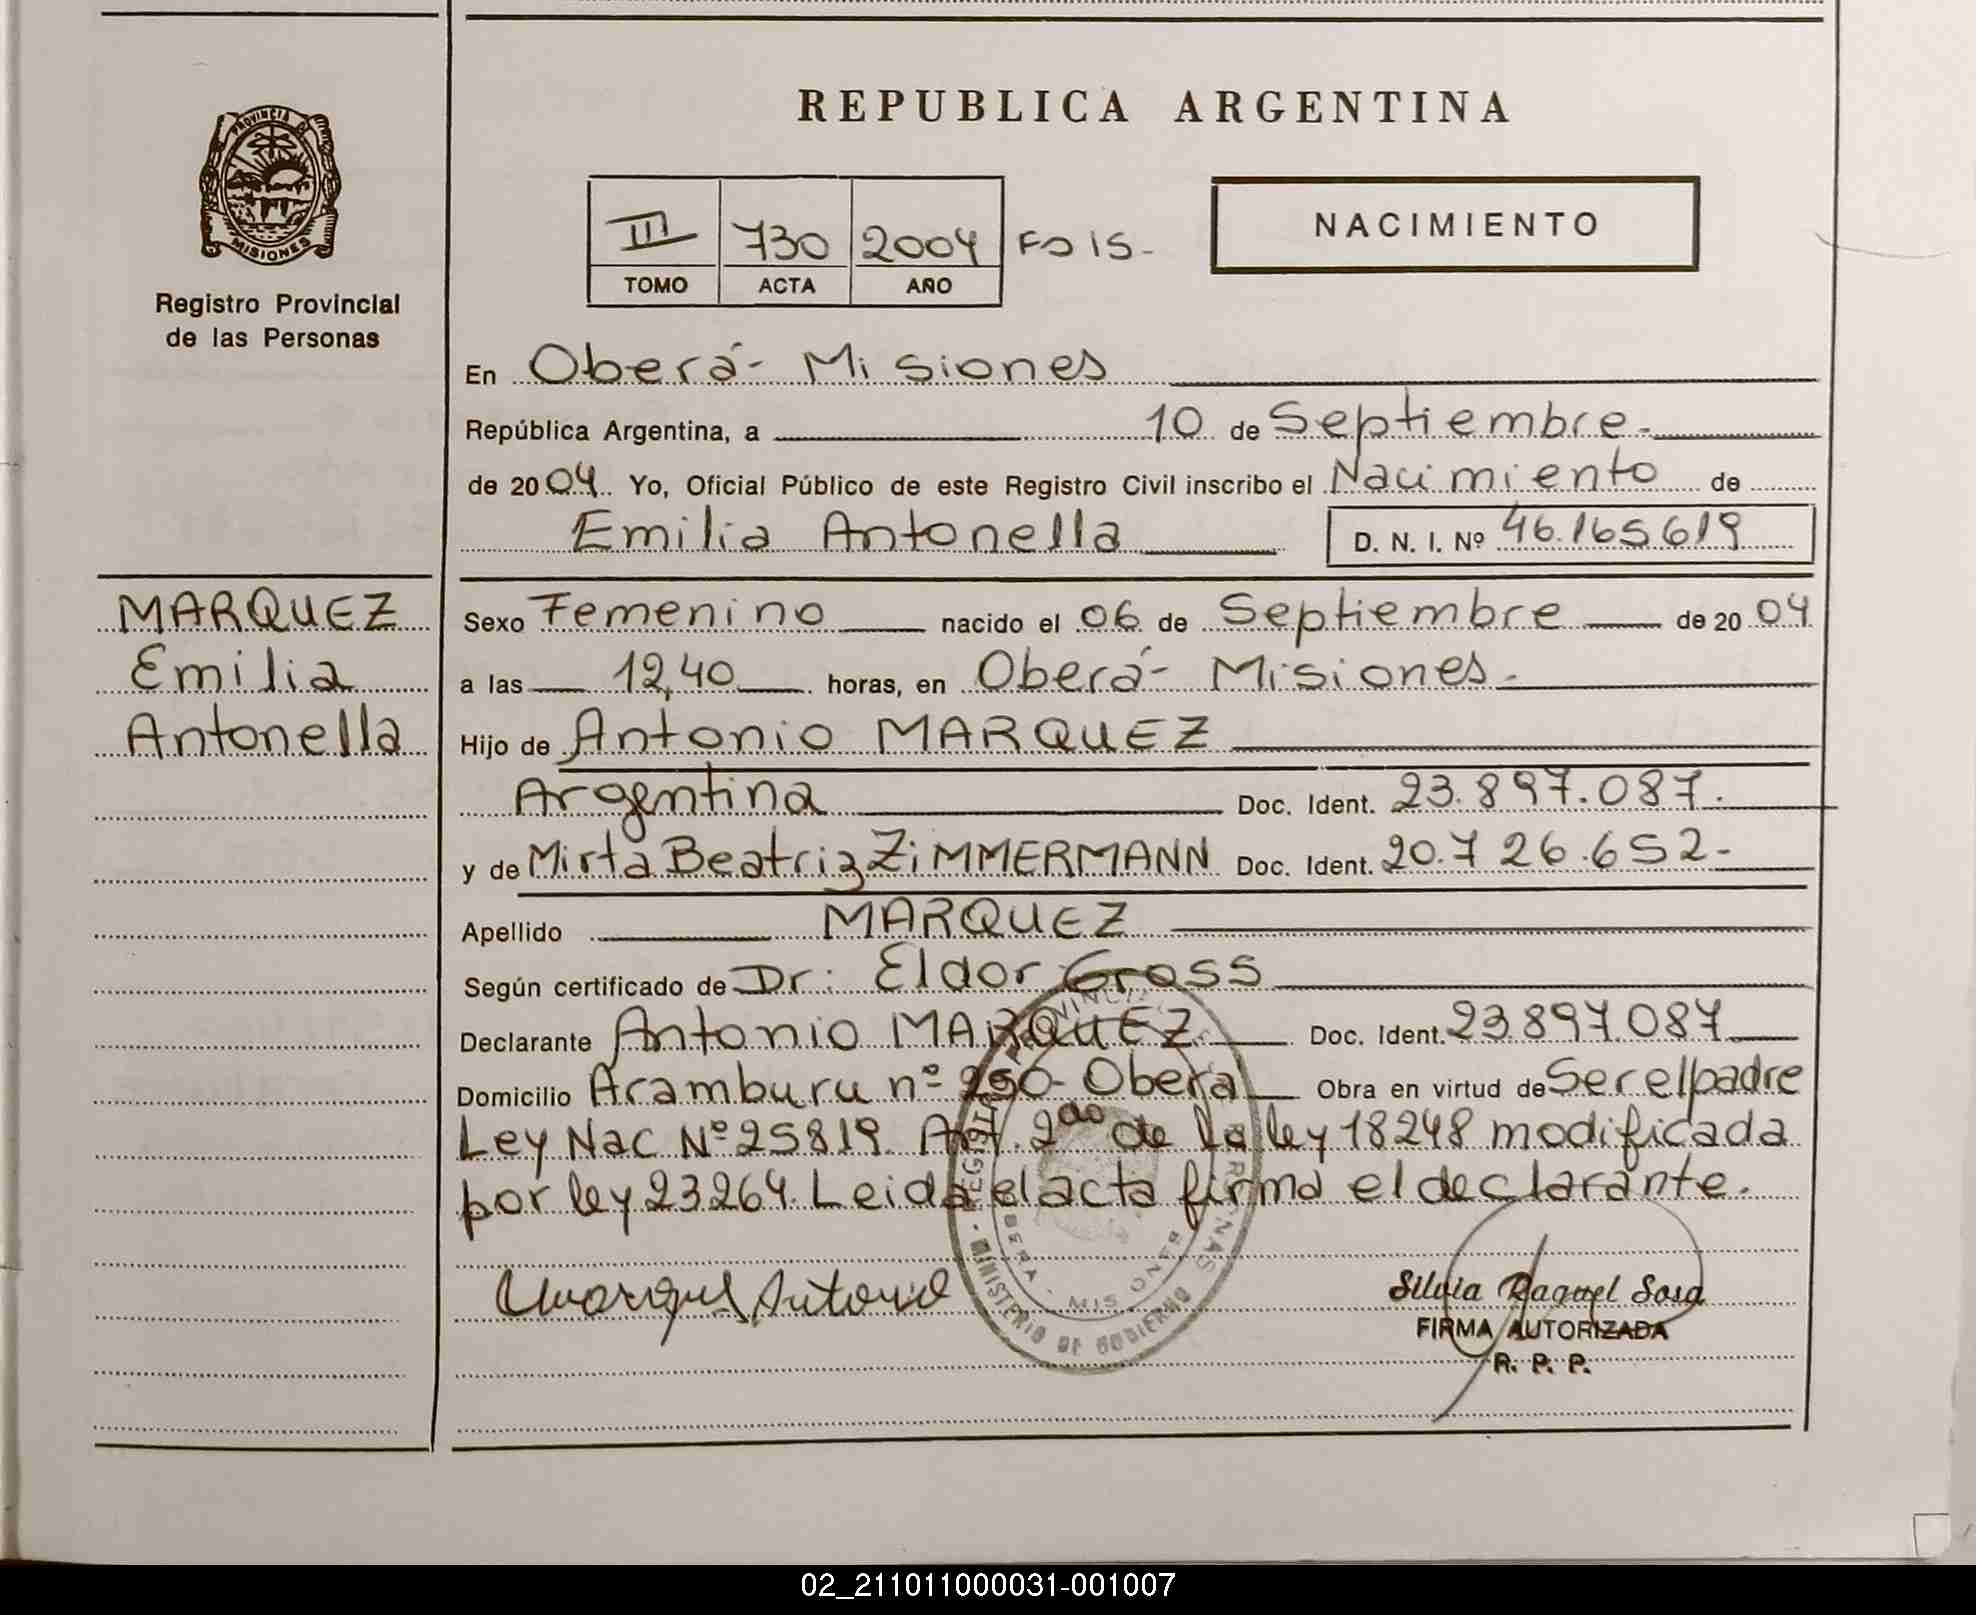 REPUBLICA ARGENTINA
PROVINCIA DE
MISIONES
Registro Provincial
de las Personas
III 730 2004 Fo 15-
TOMO ACTA AÑO
NACIMIENTO
En Oberá- Misiones
República Argentina, a 10 de Septiembre-
de 2004 Yo, Oficial Público de este Registro Civil inscribo el Nacimiento de
Emilia Antonella D. N. I. Nº 46.165619
MARQUEZ
Emilia
Antonella
Sexo Femenino nacido el 06 de Septiembre de 2004
a las 12,40 horas, en Oberá- Misiones-
Hijo de Antonio MARQUEZ
Argentina Doc. Ident. 23.897.087.
y de Mirta Beatriz ZiMMERMANN Doc. Ident. 20.726.652-
Apellido MARQUEZ
Según certificado de Dr: Eldor Gross
Declarante Antonio MARQUEZ Doc. Ident. 23.897.087
Domicilio Aramburu nº 250- Oberá Obra en virtud de Ser el padre
Ley Nac Nº 25819. Art. 2do de la ley 18248 modificada
por ley 23264. Leida el acta firma el declarante.
Marquez Antonio
MINISTERIO DE GOBIERNO
OBERA - MISIONES
Silvia Raquel Sosa
FIRMA AUTORIZADA
R. P. P.
02_211011000031-001007